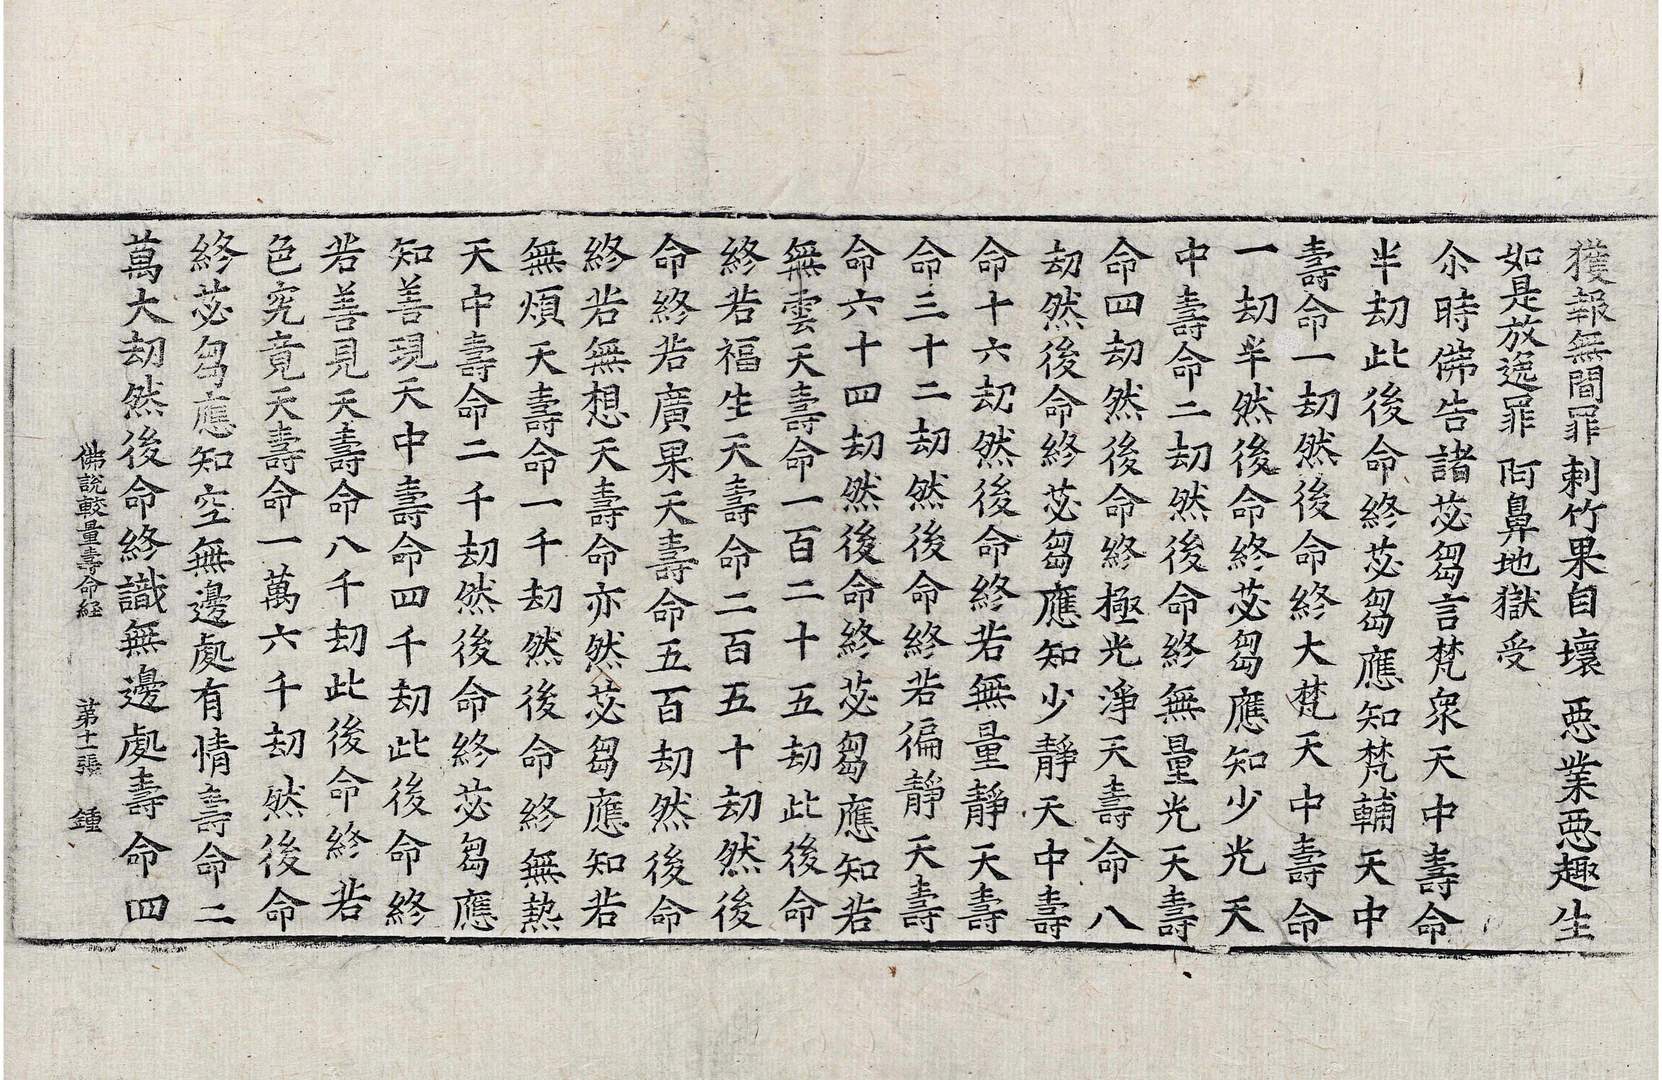 獲報無間罪 刺竹果自壞 惡業惡趣生
如是放逸罪 阿鼻地獄受
尒時佛告諸苾芻言梵衆天中壽命
半劫此後命終苾芻應知梵輔天中
壽命一劫然後命終大梵天中壽命
一劫半然後命終苾芻應知少光天
中壽命二劫然後命終無量光天壽
命四劫然後命終極光淨天壽命八
劫然後命終苾芻應知少靜天中壽
命十六劫然後命終若無量靜天壽
命三十二劫然後命終若徧靜天壽
命六十四劫然後命終苾芻應知若
無雲天壽命一百二十五劫此後命
終若福生天壽命二百五十劫然後
命終若廣果天壽命五百劫然後命
終若無想天壽命亦然苾芻應知若
無煩天壽命一千劫然後命終無熱
天中壽命二千劫然後命終苾芻應
知善現天中壽命四千劫此後命終
若善見天壽命八千劫此後命終若
色究竟天壽命一萬六千劫然後命
終苾芻應知空無邊處有情壽命二
萬大劫然後命終識無邊處壽命四
佛說較量壽命経 第十一張 鍾